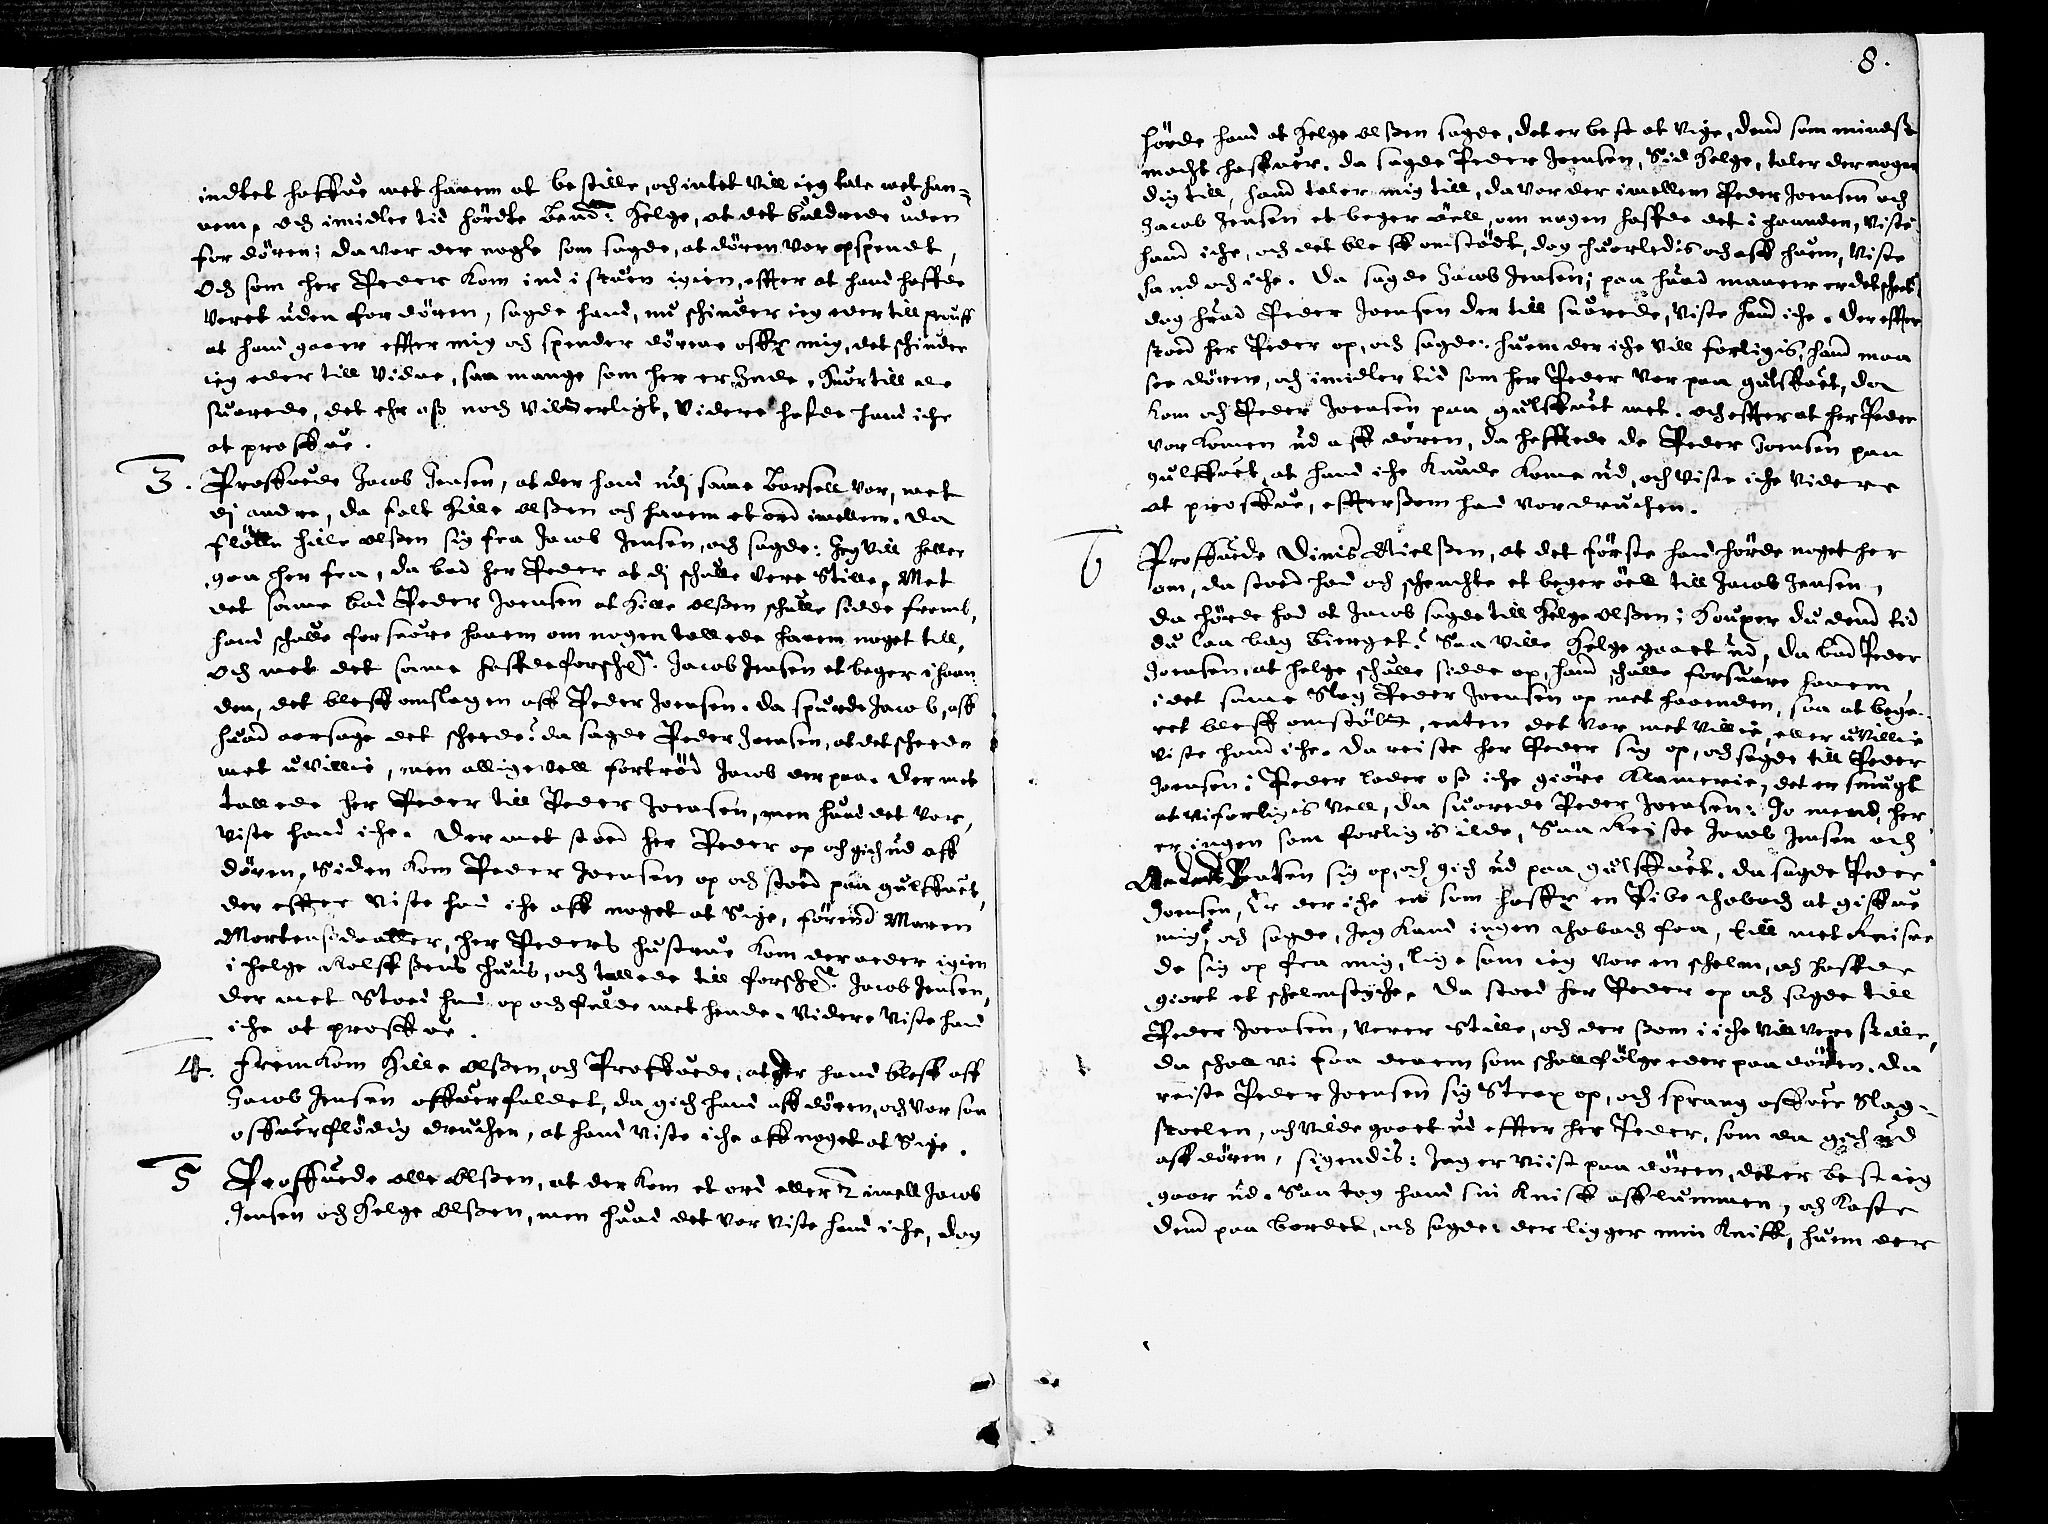 indtet haffue met hanem at bestille, och intet vill ieg tale met han-
nem, Och imidler tid hördte Helge, at det buldrede uden
for dören; da var der nogle som sagde, at dören var opspendt,
Och som her Peder kom ind i stuen igien, effter at hand haffde
veret uden for dören, sagde hand, nu schinder ieg eder till
at hand gaaer effter mig och spender dörene offr mig, det schinder
ieg eder till vidne, saa mange som her er Inde, Huortill de
suarede, det ehr oß noch vitterligt, videre hafde hand iche
at proffue.
3. Proffuede Jacob Jensen, at der hand udj same Barsell var, met
dj andre, da falt Hille Olßen och hanem et ord imellem. Da
flötte Hille Olßen sig fra Jacob Jensen, och sagde: Jeg vill heller
gaa her fra, da bad her Peder at dj schulle vere Stille, Met
det same bad Peder Joensen at Hille Olßen schulle sidde fremb,
hand schulle forsuare hanem om nogen tallede hanem noget till,
Och met det same haffde forschr. Jacob Jensen et beger i haan
den, det bleff omslagen aff Peder Joensen. Da spurde Jacob, aff
huad aarsage det scheede? da sagde Peder Joensen, at det scheede
met uvillie, men alligevell fortröd Jacob der paa. Der met
tallede her Peder till Peder Joensen, men huad det var,
viste hand iche. Der met stoed her Peder op och gich ud aff
dören, Siden kom Peder Joensen op och stoed paa gulffuet,
der effter viste hand iche aff noget at Sige, förend Maren
Mortensdaatter, her Peders hustrue kom der neder igien
i Helge huus, och tallede till forschr. Jacob Jensen,
der met Stoed hand op och fulde met hende. Videre viste hand
iche at proffue.
4. Fremkom Hille Olßen, och Proffuede, at der hand bleff aff
Jacob Jensen offuerfaldet, da gich hand aff dören, och var saa
offuerflödig druchen, at hand viste iche aff noget at Sige.
5 Proffuede Olle Olßen, at der kom et ord eller 2 imell Jacob
Jensen och Helge Olßen, men huad det var viste hand iche, dog
8.
hörde hand at Helge Olßen sagde, det er best at vige, dend som mindst
macht haffuer. Da sagde Peder Joensen, Sid Helge, taler der nogen
dig till, hand taler mig till, da var der imellem Peder Joensen och
Jacob Jensen et beger öell, om nogen haffde det i haanden, viste
hand iche, och det bleff omstödt, dog huorledis och aff huem, viste
hand och iche. Da sagde Jacob Jensen; paa huad maneer er det scheed,
dog huad Peder Joensen der till suarede, viste hand iche. Der effter
stoed her Peder op, och sagde: huem der iche vill forligis, hand maa
see dören, och imidler tid som her Peder var paa gulffuet, da
kom och Peder Joensen paa gulffuet met. och effter at her Peder
var komen ud aff dören, da hefftede de Peder Joensen paa
gulffuet, at hand iche kunde kome ud, och viste iche videre
at proffue, effterßom hand var druchen.
6 Proffuede Dinis Nielßen, at det förste hand hörde noget her
om, da stoed hand och schenchte et beger öell till Jacob Jensen,
da hörde hand at Jacob sagde till Helge Olßen; Houper du dend tid
du laa bag Bierget? Saa ville Helge gaaet ud, da bad Peder
Joensen, at Helge schulle sidde op, hand schulle forsuare hanem
i det same Slog Peder Joensen op met haanden, saa at bege-
ret bleff omstött, enten det var met villie, eller uvillie
viste hand iche. Da reiste her Peder sig op, och sagde till Peder
Joensen: Peder lader oß iche giöre Klamerie, det er smugt
at vi forligis vell, da suarede Peder Joensen: Jo mend, her
er ingen som forligis ilde, Saa reiste Jacob Jensen och
sig op, och gich ud paa gulffuet. da sagde Peder
Joensen, Er der iche en som haffr en Pibe thobach at giffue
mig, och sagde, Jeg kand ingen thobach faa, till met reise
de sig op fra mig, lige som ieg var en schelm, och haffde
giort et schelmstyche. Da stoed her Peder op och sagde till
Peder Joensen, verer Stille, och der ßom i iche vill vere stille,
da schall vi faa denem som schall fölge eder paa dören. Da
reiste Peder Joensen sig Strax op, och sprang offuer Slag-
stoelen, och vilde gaaet ud effter her Peder, som da gich ud
aff dören, sigendis: Jeg er viist paa dören, det er best ieg
gaar ud. Saa tog hand sin Kniff aff lummen, och kaste
dend paa bordet, och sagde: der ligger min Kniff, huem der